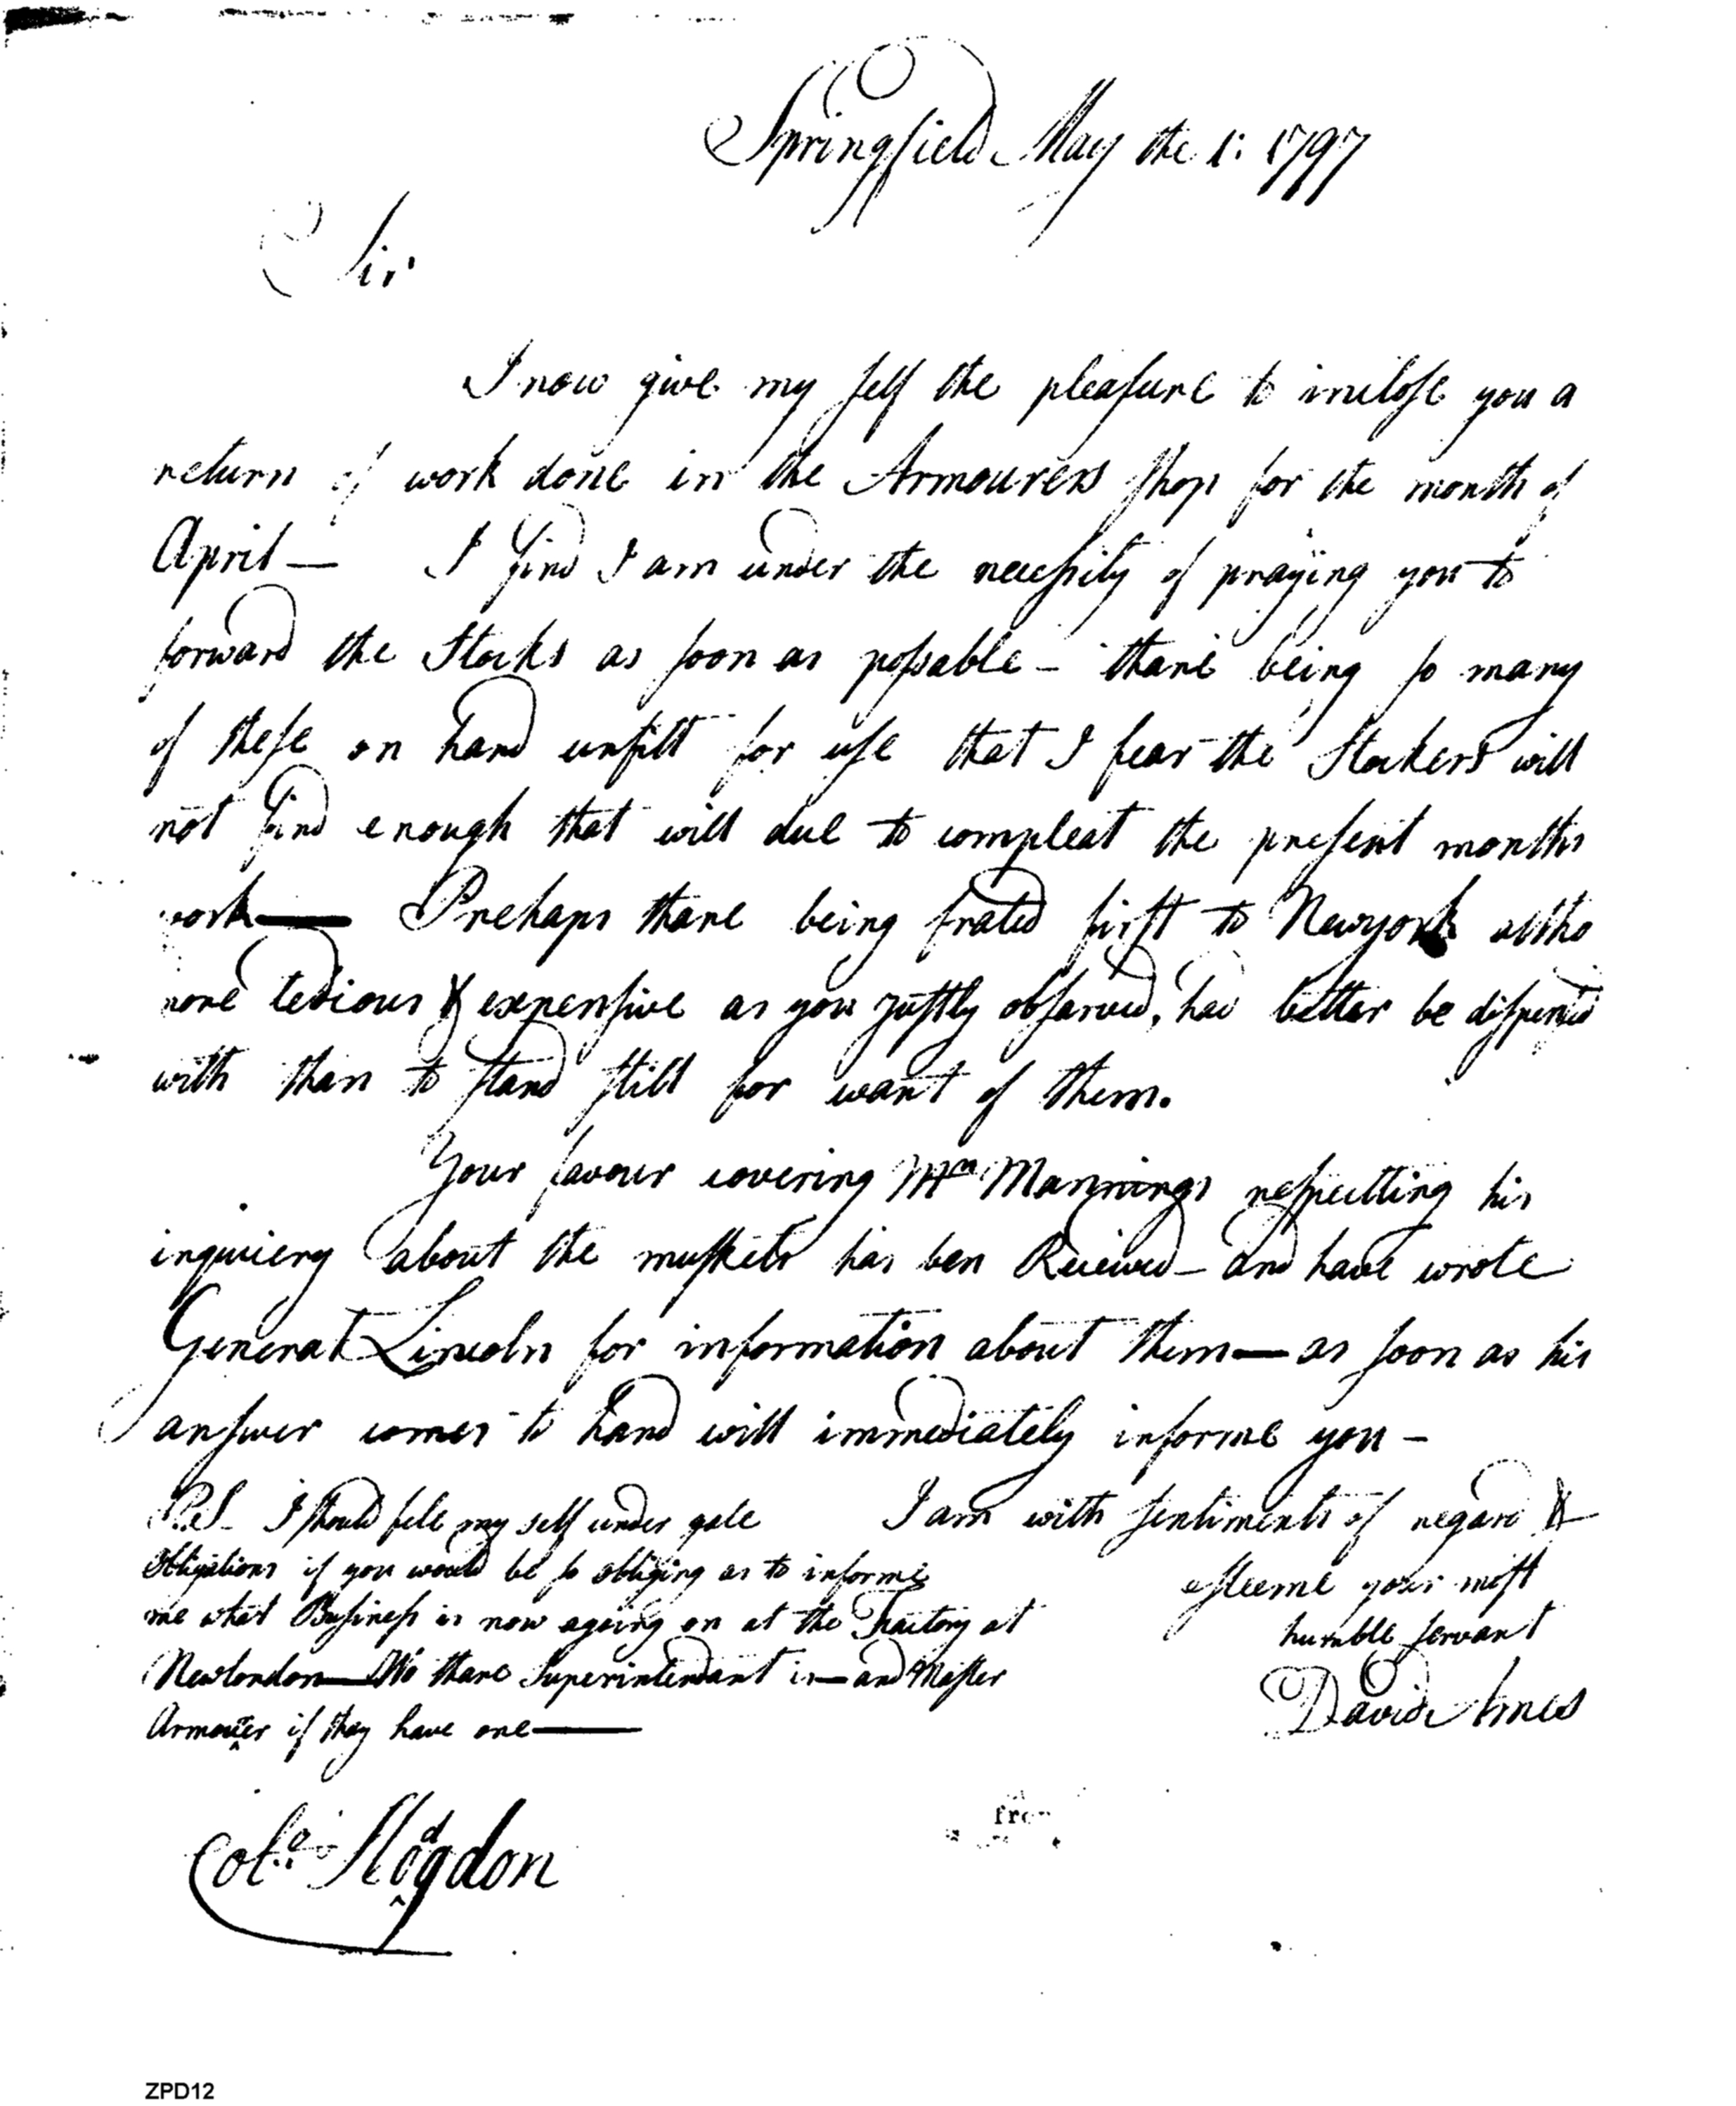 Springfield May the 1: 1797
Sir
I now give my self the pleasure to inclose you a
return of work done in the Armourers shop for the month of
April — I find I am under the necessity of praying you to
forward the Stocks as soon as possable – thare being so many
of these on hand unfitt for use that I fear the Stockers will
not find enough that will due to compleat the present months
work — Prehaps thare being frated first to Newyork altho
more tedious & expensive as you justly obsarved, had better be dispensed
with than to stand still for want of them.
Your favour covering Mr Mannings respectting his
inquiery about the muskets has ben Reciewed – and have wrote
General Lincoln for information about them — as soon as his
answer comes to hand will immediately informe you –
I am with sentiments of regard &
esteeme your most
humble servant
David Ames
P.S – I should fele my self under gale
Obligations if you would be so obliging as to informe
me what Business is now agoing on at the Factory at
Newlondon — Who thare Superintendant is — and Master
Armourer if they have one —
Colo. Hodgdon
ZPD12